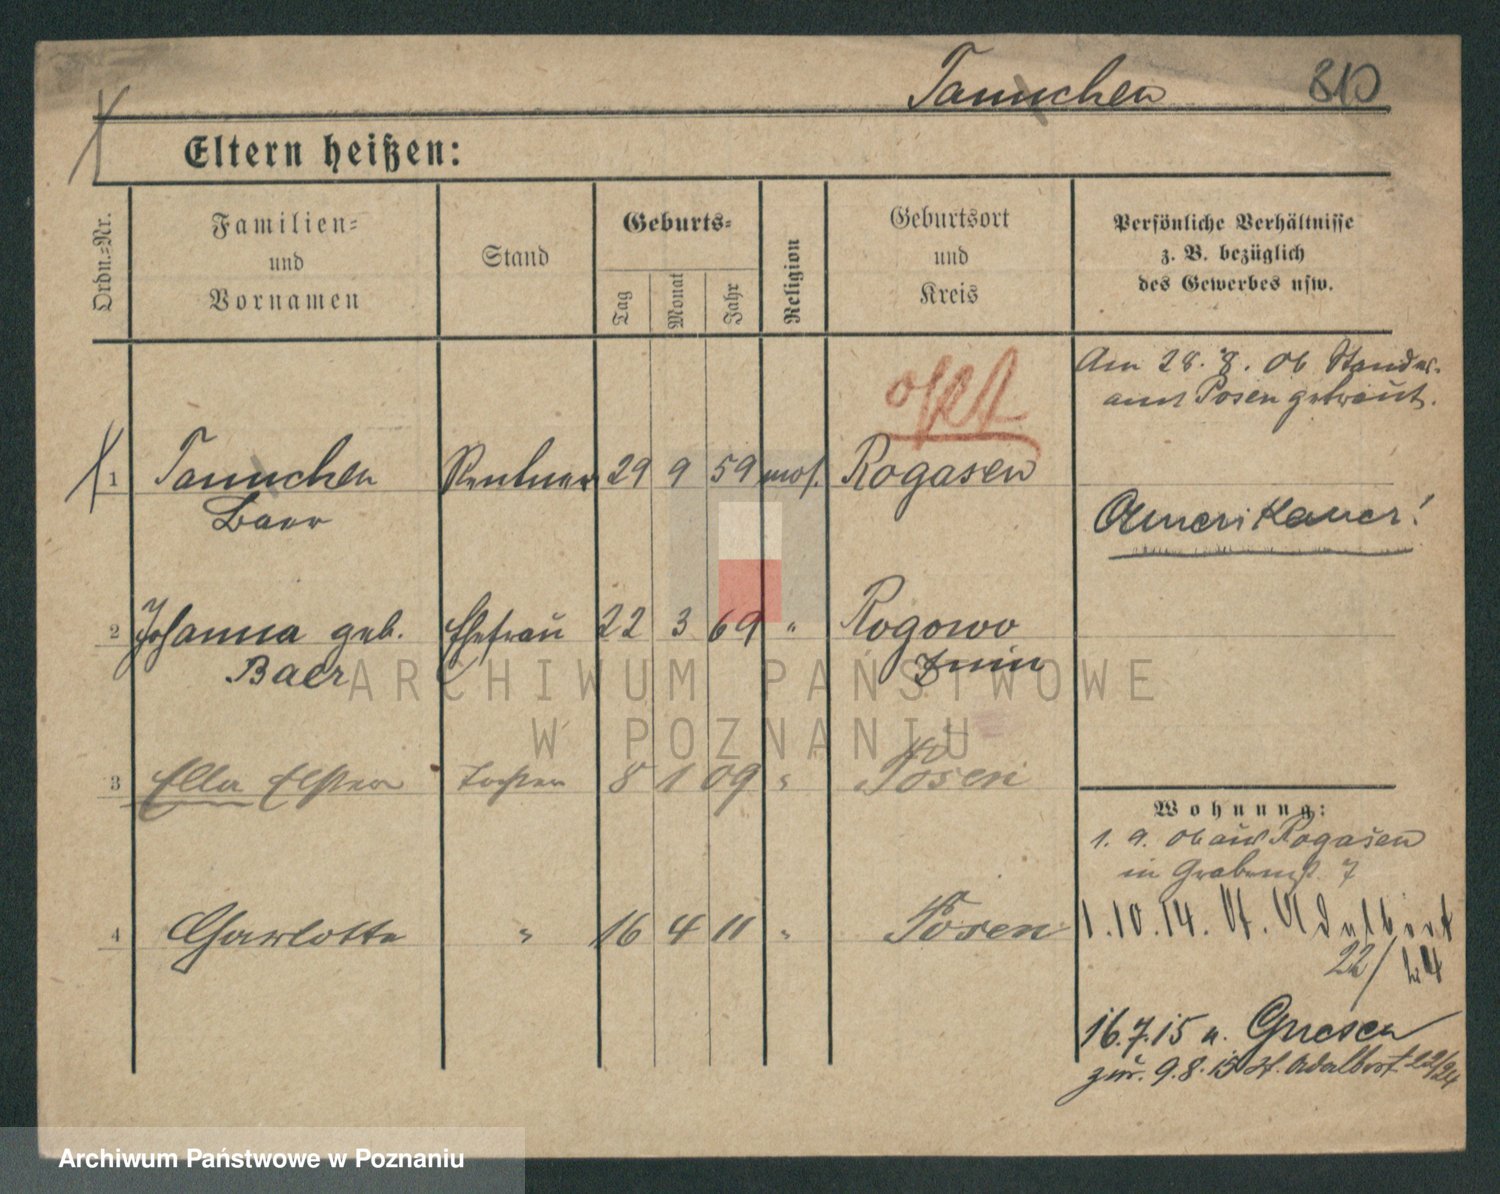 Tannchen 810
Eltern heißen:
Ordn.-Nr.
Familien-
und
Vornamen
Stand
Geburts-
Tag
Monat
Jahr
Religion
Geburtsort
und
Kreis
Persönliche Verhältnisse
z. B. bezüglich
des Gewerbes usw.
Am 28. 8. 06 Standes-
amt Posen getraut.
1 Tannchen Rentner 29 9 59 mos. Rogasen
Baer
Amerikaner!
2 Johanna geb. Ehefrau 22 3 69 " Rogowo
Baer Znin
3 Ella Tochter 8 1 09 " Posen
Wohnung:
1. 9. 06 aus Rogasen
in Grabenst. 7
4 Charlotte " 16 4 11 " Posen
1.10.14. St. Adalbert
22/24
16.7.15 n. Gnesen
zur. 9.8.15 St. Adalbert 22/24
ARCHIWUM PAŃSTWOWE
W POZNANIU
Archiwum Państwowe w Poznaniu